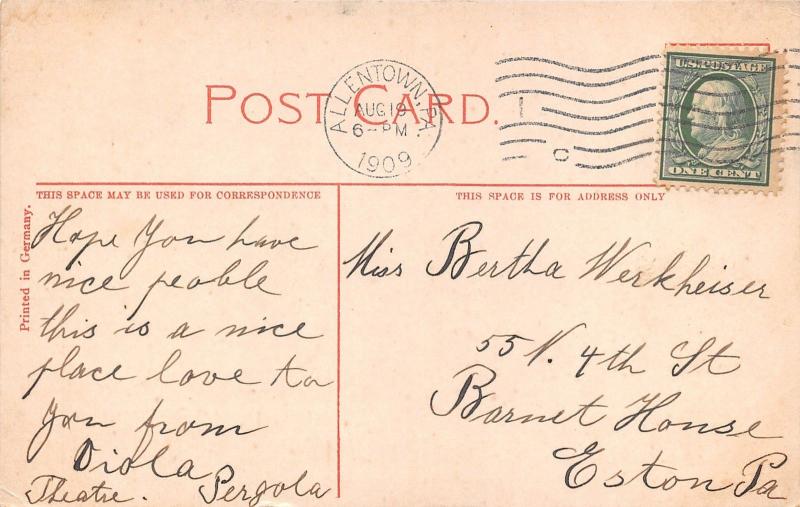 POST CARD.
ALLENTOWN, PA
AUG 19
6-PM
1909
U.S. POSTAGE
ONE CENT
THIS SPACE MAY BE USED FOR CORRESPONDENCE
THIS SPACE IS FOR ADDRESS ONLY
Printed in Germany.
Hope You have
nice peoble
this is a nice
place love to
you from
Viola
Theatre. Pergola
Miss Bertha Werkheiser
55 N. 4th St
Barnet House
Eston Pa